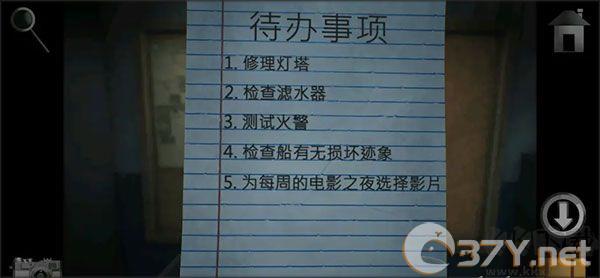 待办事项
1. 修理灯塔
2. 检查滤水器
3. 测试火警
4. 检查船有无损坏迹象
5. 为每周的电影之夜选择影片
37Y.net